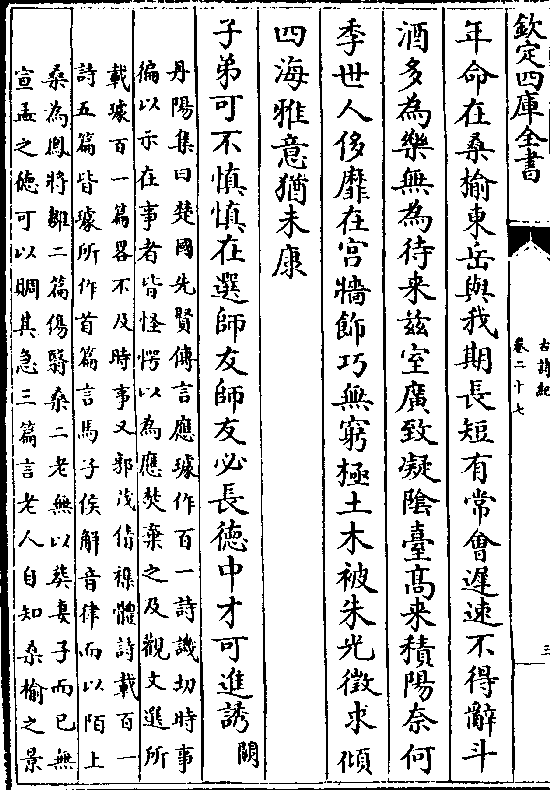 欽定四庫全書
古詩紀
卷二十七
三
年命在桑榆東岳與我期長短有常會遲速不得辭斗
酒多為樂無為待来兹室廣致凝陰臺髙来積陽奈何
季世人侈靡在宫牆飾巧無窮極土木被朱光徴求傾
四海雅意猶未康
子弟可不慎慎在選師友師友必長徳中才可進誘闕
丹陽集曰楚國先賢傳言應璩作百一詩譏切時事
徧以示在事者皆怪愕以為應焚棄之及觀文選所
載璩百一篇畧不及時事又郭茂倩襍體詩載百一
詩五篇皆璩所作首篇言馬子侯解音律而以陌上
桑為鳳將雛二篇傷翳桑二老無以葬妻子而已無
宣孟之徳可以賙其急三篇言老人自知桑榆之景